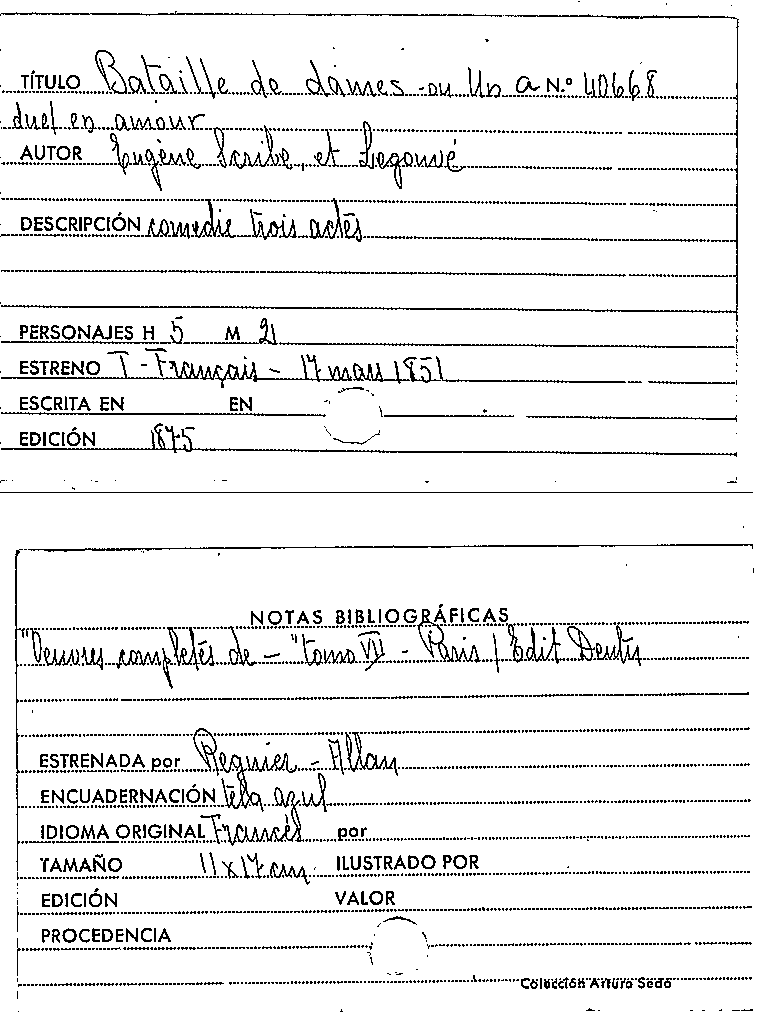 TÍTULO Bataille de dames -ou Un a N.º 40668
duel en amour
AUTOR Eugène Scribe, et Legouvé
DESCRIPCIÓN comedie trois actes
PERSONAJES H 5 M 21
ESTRENO T - Français - 17 mars 1851
ESCRITA EN EN
EDICIÓN 1875
NOTAS BIBLIOGRÁFICAS
"Oeuvres completés de - "tomo VII - Paris / Edit Dentu
ESTRENADA por Regnier - Allan
ENCUADERNACIÓN tela azul
IDIOMA ORIGINAL Francés por
TAMAÑO 11 x 17 cm. ILUSTRADO POR
EDICIÓN VALOR
PROCEDENCIA
Colección Arturo Sedó